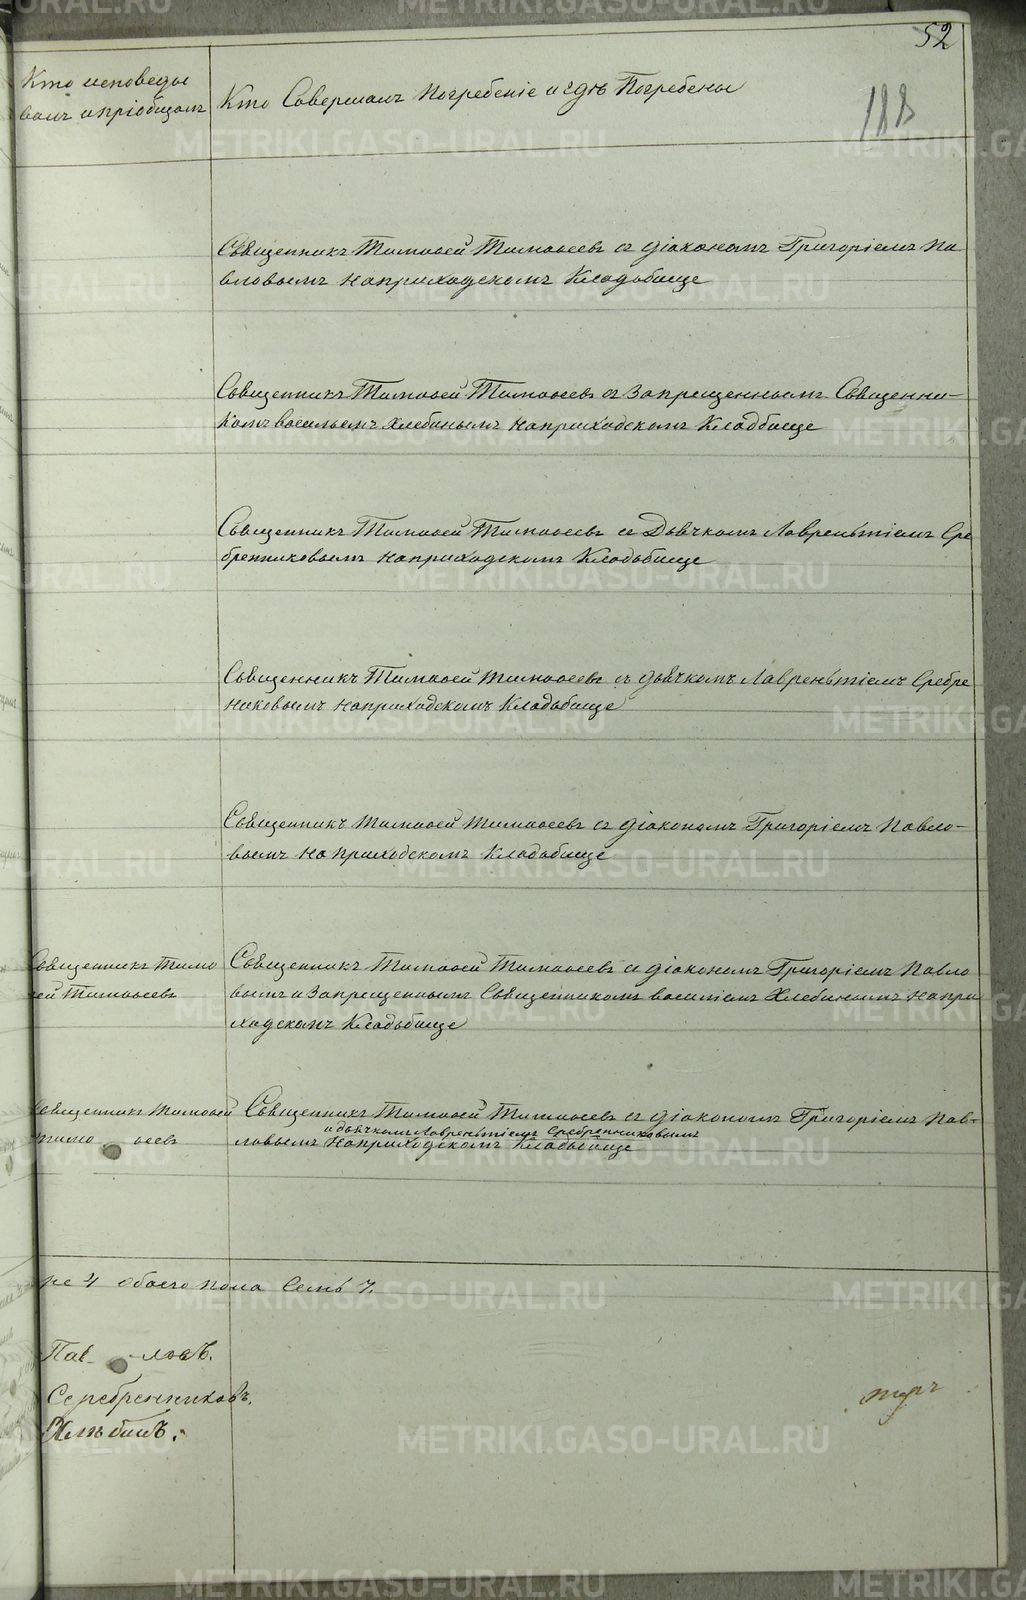 52
188
Кто исповеды
валъ и пріобщалъ
Кто Совершалъ Погребеніе и гдѣ Погребены
Священникъ Тимоѳей Тимоѳеевъ съ діакономъ Григоріемъ Па
вловымъ на приходскомъ Кладьбище
Священникъ Тимоѳей Тимоѳеевъ съ Запрещеннымъ Священни-
комъ васильемъ Хлебинымъ на приходскомъ Кладбище
Священникъ Тимоѳей Тимоѳеевъ съ Дьячкомъ Лаврентіемъ Сре
бренниковымъ на приходскомъ Кладьбище
Священникъ Тимоѳей Тимоѳеевъ съ дьячкомъ Лаврентіемъ Сребре
никовымъ на приходскомъ Кладьбище
Священникъ Тимоѳей Тимоѳеевъ съ діакономъ Григоріемъ Павло-
вымъ на приходскомъ Кладьбище
Священникъ Тимо
ѳей Тимоѳеевъ
Священникъ Тимоѳей Тимоѳеевъ съ діакономъ Григоріемъ Павло
вымъ и Запрещеннымъ Священникомъ василіемъ Хлебинымъ на при
ходскомъ Кладьбище
Священникъ Тимоѳей
Тимо ѳеевъ
Священникъ Тимоѳей Тимоѳеевъ съ діакономъ Григоріемъ Пав-
и дьячкомъ Лаврентіемъ Сребренниковымъ
ловымъ на приходскомъ Кладьбище
ре 4 обоего пола Семь 7.
Пав- -ловъ.
Серебренниковъ.
Хлѣбинъ.
METRIKI.GASO-URAL.RU